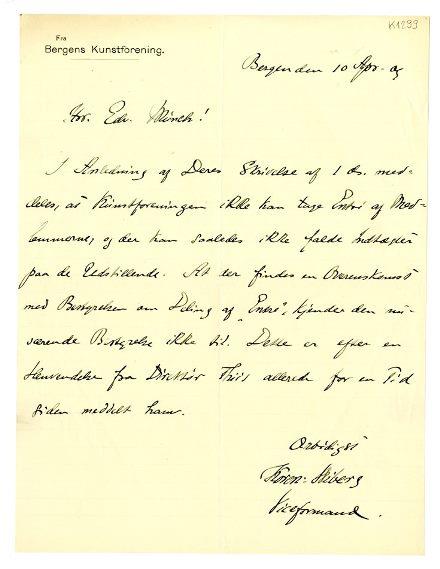 K1299
Fra
Bergens Kunstforening.
Bergen den 10 Apr. 09
Hr. Edv. Munch!
I Anledning af Deres Skrivelse af 1 ds. med-
deles, at Kunstforeningen ikke kan tage Entré af Med-
lemmerne, og der kan saaledes ikke falde Indtægter
paa de Udstillende. At der findes en Overenskomst
med Bestyrelsen om Deling af "Entré", kjender den nu-
værende Bestyrelse ikke til. Dette er efter en
Henvendelse fra Direktør Thiis allerede for en Tid
siden meddelt ham.
Ærbødigst
Viceformand.